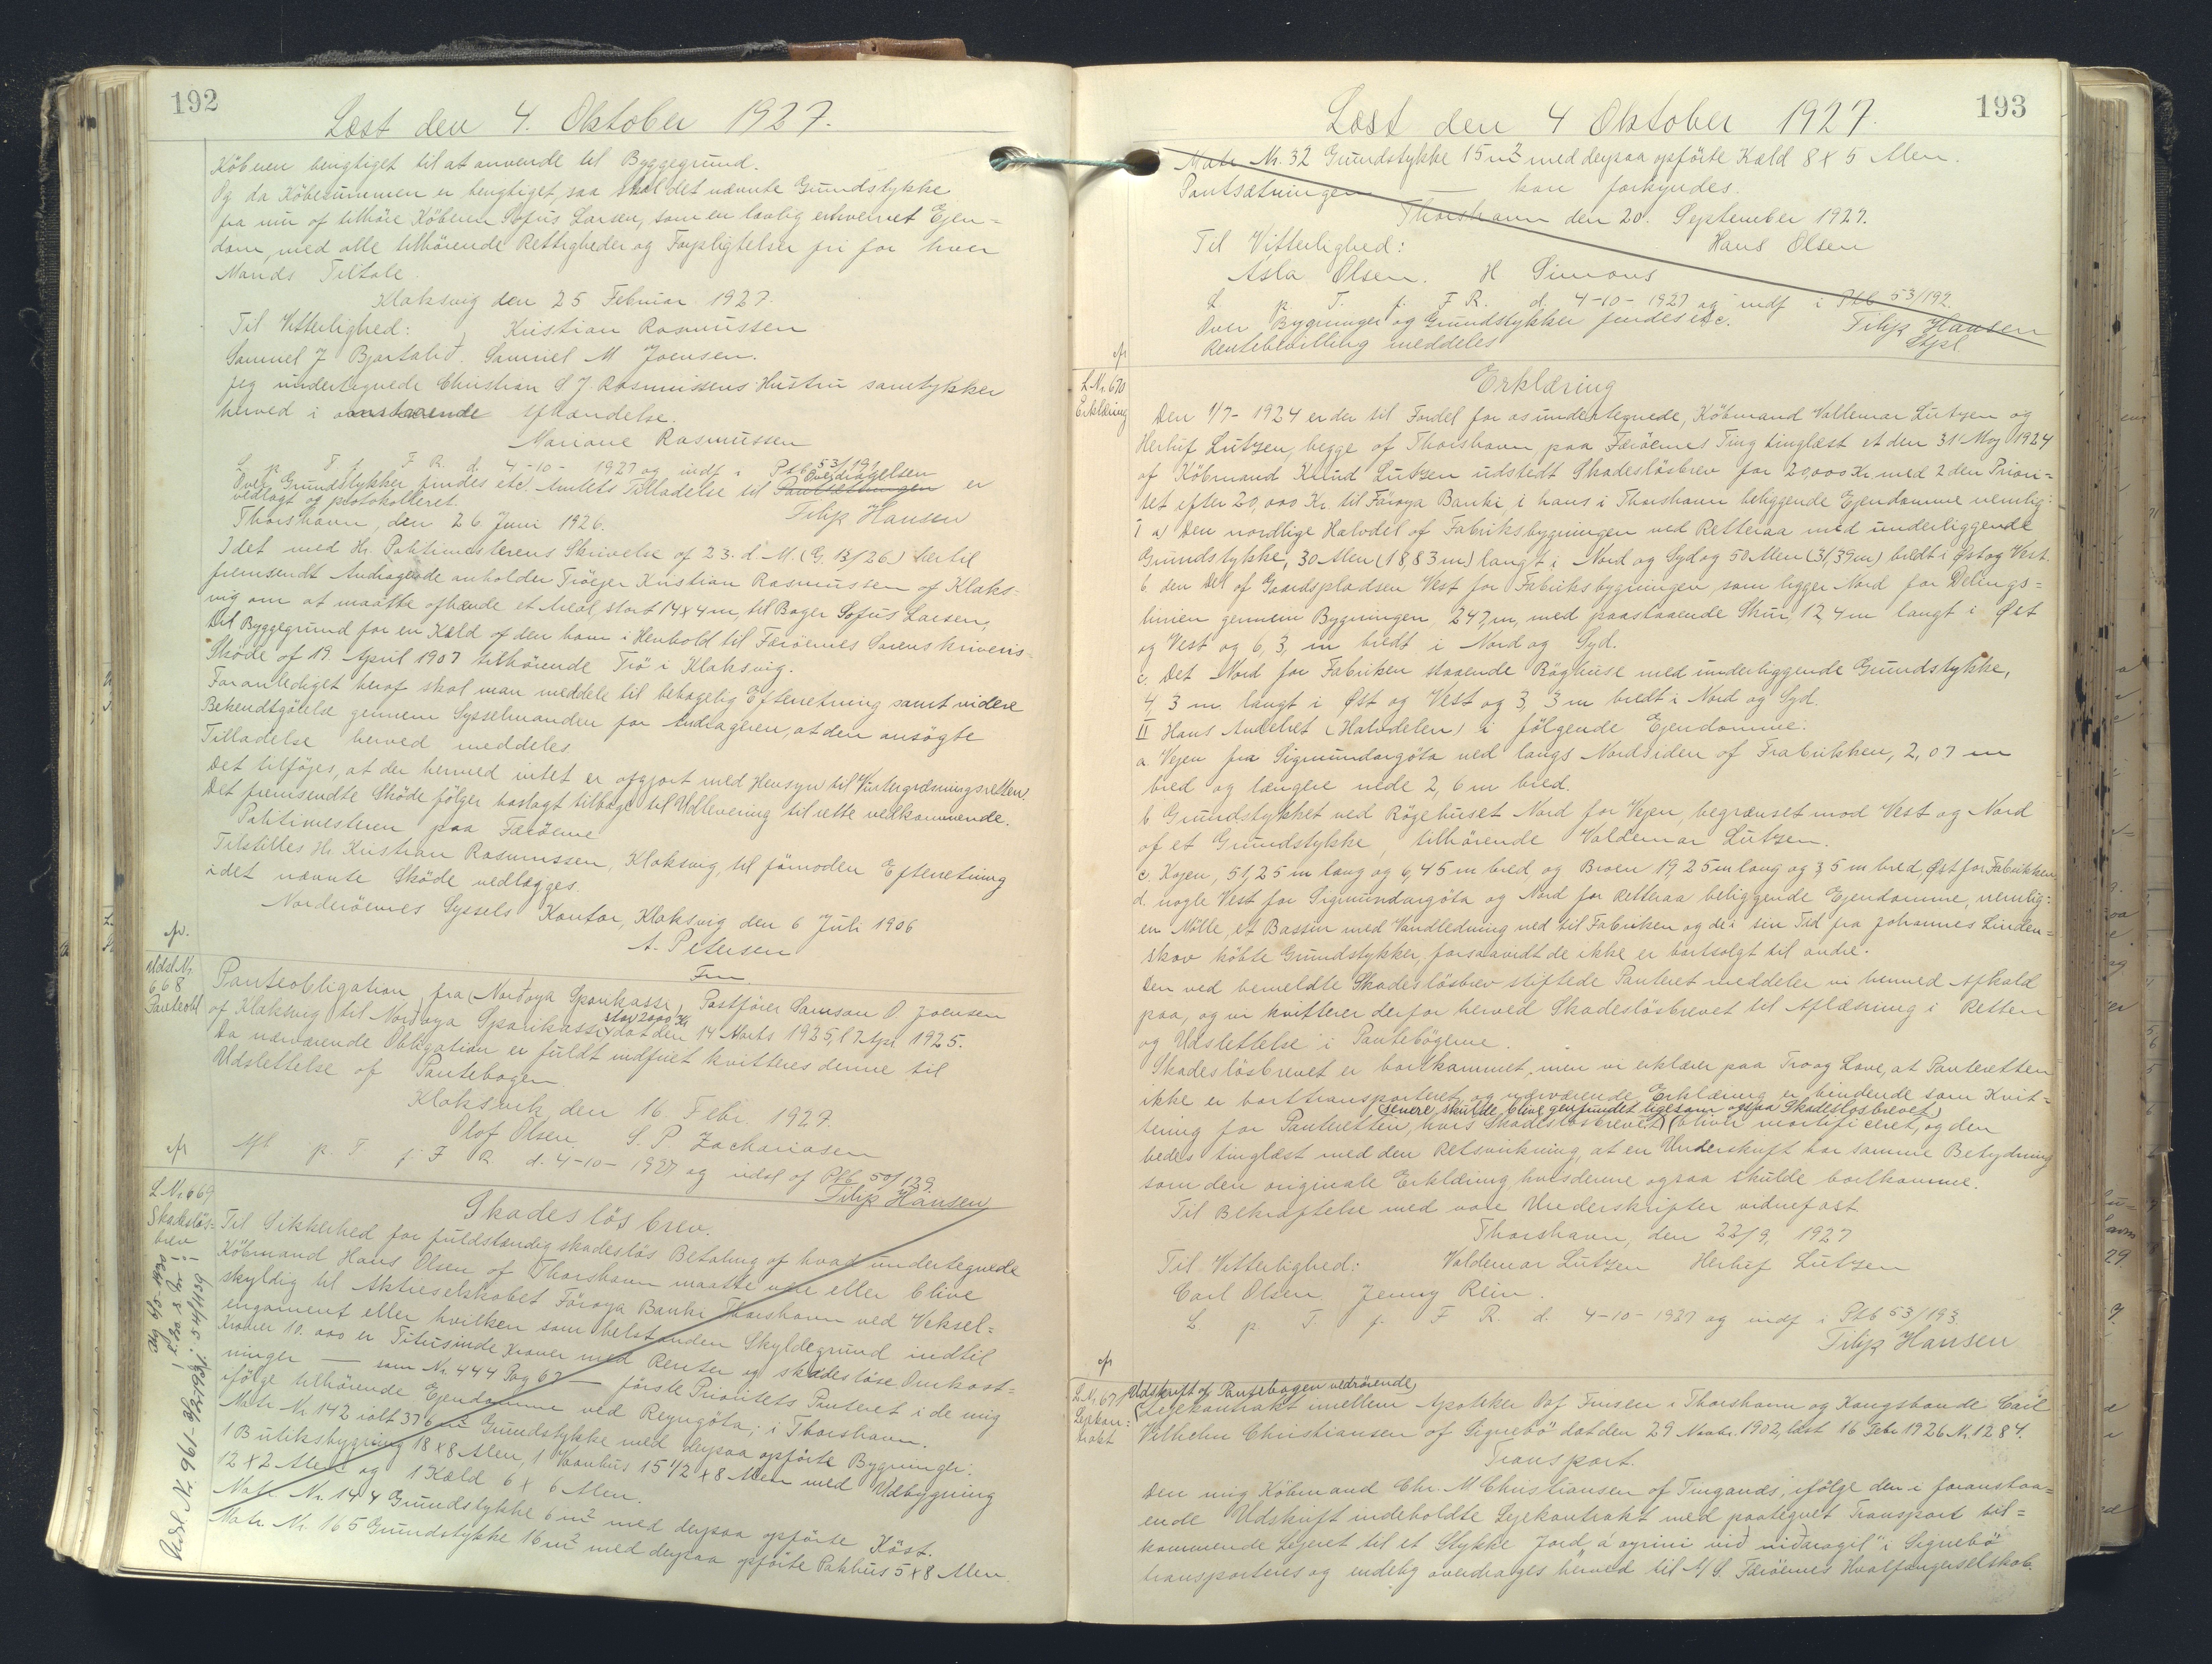 192
Læst den 4. Oktober 1927.
Köberen bengtiget til at anvende til Byggegrund.
Og da Köbesummen er bengtiget, saa skal det nævnte Grundstykke
fra nu af tilhöre Köberen Sofus Larsen, som en lovlig erhvervet Ejen=
dom, med alle tilhörende Rettigheder og Forpligtelser fri for hver
Mands Tiltale.
Klaksvig den 25 Februar 1927.
Til Vitterlighed: Kristian Rasmussen
Samuel J Bjartalid. Samuel M Joensen.
Jeg undertegnede Christian S J. Rasmussens Hustru samtykker
herved i ovenstaaende Afhændelse.
Mariane Rasmussen
L p. T. f. F R. d. 4-10- 1927 og indf i Ptb 53/191
Over Grundstykker findes etc. Amtets Tilladelse til Pantsætningen Overdragelsen er
vedlagt og protokolleret.
Thorshavn, den 26. Juni 1926. Filip Hansen
Idet med Hr. Politimesterens Skrivelse af 23. d. M. (G. 13/26) hertil
fremsendt Andragende anholder Tröejer Kristian Rasmussen af Klaks=
vig om at maatte afhænde et Areal, stort 14 x 4 m, til Bager Sofus Larsen,
til Byggegrund for en Kæld af den ham i Henhold til Færöernes Sorenskriveris=
Sköde af 19. April 1907 tilhörende Trö i Klaksvig.
Foranlediget heraf skal man meddele til behagelig Efterretning samt videre
Bekendtgörelse gennem Sysselmanden for Andrageren, at den ansögte
Tilladelse herved meddeles.
Det tilföjes, at der hermed intet er afgjort med Hensyn til Vintergræsningsretten.
Det fremsendte Sköde fölger hoslagt tilbage til Udlevering til rette vedkommende.
Politimesteren paa Færöerne
Tilstilles Hr. Kristian Rasmussen, Klaksvig, til fornoden Efterretning
idet nævnte Sköde vedlægges.
Norderöernes Syssels Kontor, Klaksvig den 6 Juli 1906
A. Petersen
Fm
Udsl. Nr.
668
Panteobl
Panteobligation fra (Nordoya Sparikasse) Postförer Samson O. Joensen
af Klaksvig til Nordoya Sparikassi stor 2000 Kr dat den 14 Marts 1925, l 7 Apr 1925.
Da nærværende Obligation er fuldt indfriet kvitteres denne til
Udslettelse af Pantebogen.
Klaksvik, den 16. Febr. 1927.
Olof Olsen S. P. Zachariasen
Afl p. T. f. F R. d. 4-10- 1927 og udsl af Ptb 50/129
Filip Hansen
L Nr. 669
Skadeslös=
brev
Udsl. Nr. 961-
Skadeslös brev.
Til Sikkerhed for fuldstændig skadeslös Betaling af hvad undertegnede
Köbmand Hans Olsen af Thorshavn maatte være eller blive
skyldig til Aktieselskabet Föroya Banki Thorshavn ved Veksel=
engament eller hvilken som helst anden Skyldegrund indtil
Kroner 10.000 er Titusinde Kroner med Renter og skadeslöse Omkost=
ninger — som Nr. 444 Pag 67 — förste Prioritets Panteret i de mig
ifölge tilhörende Ejendomme ved Reyngöta; i Thorshavn.
Matr Nr 142 ialt 376 m² Grundstykke med derpaa opförte Bygninger:
1 Butiksbygning 18 x 8 Alen, 1 Vaanhus 15 1/2 x 8 Alen med Udbygning
12 x 2 Alen og 1 Kæld 6 x 6 Alen.
Matr. Nr. 144 Grundstykke 6 m² med derpaa opförte Köst.
Matr. Nr. 165 Grundstykke 16 m² med derpaa opförte Pakhus 5 x 8 Alen.
193
Læst den 4 Oktober 1927.
Matr Nr. 32 Grundstykke 15 m² med derpaa opförte Kæld 8 x 5 Alen.
Pantsætningen — kan forkyndes.
Thorshavn den 20. September 1927.
Til Vitterlighed: Hans Olsen
Asla Olsen. H Simons
L p. T. f. F R. d. 4-10- 1927 og indf i Ptb 53/192.
Over Bygninger og Grundstykker findes etc. Filip Hansen
Rentebevilling meddeles
L Nr. 670
Erklæring
Erklæring
Den 1/7- 1924 er der til Fordel for os undertegnede, Köbmand Valdemar Lutzen og
Herluf Lutzen, begge af Thorshavn paa Færöernes Ting tinglæst et den 31' Maj 1924
af Köbmand Knud Lutzen udstedt Skadeslösbrev for 20,000 Kr med 2den Priori=
tet efter 20,000 Kr. til Föroya Banki, i hans i Thorshavn beliggende Ejendomme nemlig:
I a) Den nordlige Halvdel af Fabriksbygningen ved Retteraa med underliggende
Grundstykke, 30 Alen (18,83 m) langt i Nord og Syd og 50 Alen (31,39 m) bredt i Öst og Vest.
b. den Del af Gaardspladsen Vest for Fabriksbygningen, som ligger Nord for Delings=
linien gennem Bygningen, 247, m, med paastaaende Skur, 12, 4 m langt i Öst
og Vest og 6, 3, m bredt i Nord og Syd.
c. Det Nord for Fabriken staaende Röghuse med underliggende Grundstykke,
4, 3 m langt i Öst og Vest og 3, 3 m bredt i Nord og Syd.
II Hans Andelret (Halvdelen) i fölgende Ejendomme:
a. Vejen fra Sigmundargöta ned langs Nordsiden af Frabrikken, 2,07 m
bred og længere nede 2, 6 m bred.
b Grundstykket ved Rögehuset Nord for Vejen, begrænset mod Vest og Nord
af et Grundstykke, tilhörende Valdemar Lutzen.
c, Kajen, 51,25 m lang og 6,45 m bred og Broen 19 25 m lang og 3, 5 m bred, Öst for Fabrikken
d. nogle Vest for Sigmundargöta og Nord for Retteraa beliggende Ejendomme, nemlig:
en Mölle, et Bassin med Vandledning ned til Fabriken og de i sin Tid fra Johannes Linden=
skov köbte Grundstykker, forsaavidt de ikke er bortsolgt til andre.
Den ved bemeldte Skadeslösbrev stiftede Panteret meddeler vi herved Afkald
paa, og vi kvitterer derfor herved Skadeslösbrevet til Aflæsning i Retten
og Udslettelse i Pantebögerne.
Skadeslösbrevet er bortkommet, men vi erklærer paa Tro og Love, at Panteretten
ikke er borttransporteret og nærværende Erklæring er bindende som Kvit=
tering for Panteretten, hvis Skadeslösbrevet (senere skulde blive genfundet ligesom ogsaa Skadeslösbrevet) bliver mortificeret, og den
bedes tinglæst med den Retsvirkning, at en Underskrift har samme Betydning
som den originale Erklæring hvis denne ogsaa skulde bortkomme.
Til Bekræftelse med vore Underskrifter vidnefast
Thorshavn, den 22/9, 1927
Til Vitterlighed: Valdemar Lutzen Herluf Lutzen
Carl Olsen. Jenny Rein.
L p. T. f. F R. d. 4-10-1927 og indf i Ptb 53/193
Filip Hansen
L Nr. 671
Lejekon=
trakt
Udskrift af Pantebogen vedrörende
Lejekontrakt imellem Apoteker Oof Finsen i Thorshavn og Kongsbonde Carl
Vilhelm Christiansen af Signebö dat den 29 Novbr. 1902, læst 16 Febr 1926 Nr. 1284.
Transport.
Den mig Köbmand Chr. M Christiansen af Tinganæs, ifölge den i foranstaa=
ende Udskrift indeholdte Lejekontrakt med paategnet Transport til=
kommende Lejeret til et Stykke Jord "á oyrini við niðaragil" i Signebö
transporteres og endelig overdrages herved til A/S. Færöernes Hvalfangerselskab.